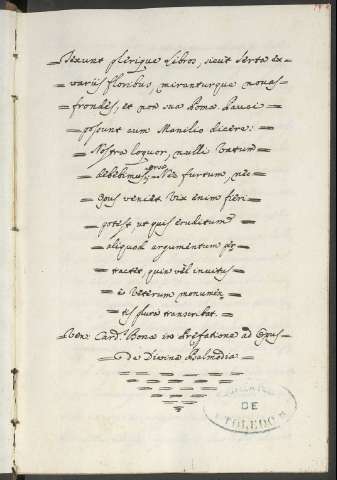 Texunt plerique Libros, sicut serta ex
variis floribus, miranturque novas
frondes, et non sua Poma. Pauci
possunt cum Manilio dicere.
Nostra loquor, nulli Vatum
debebimus orsa, Nec furtum, nec
Opus veniet. Vix enim fieri
potest, ut quis eruditum
aliquod argumentum per
tractet, quin vel invitus
è Veterum monumen
tis plura transcribat.
Ven. Card. Bona in Prefatione ad Opus
De Divina Psalmodia
DE
TOLEDO